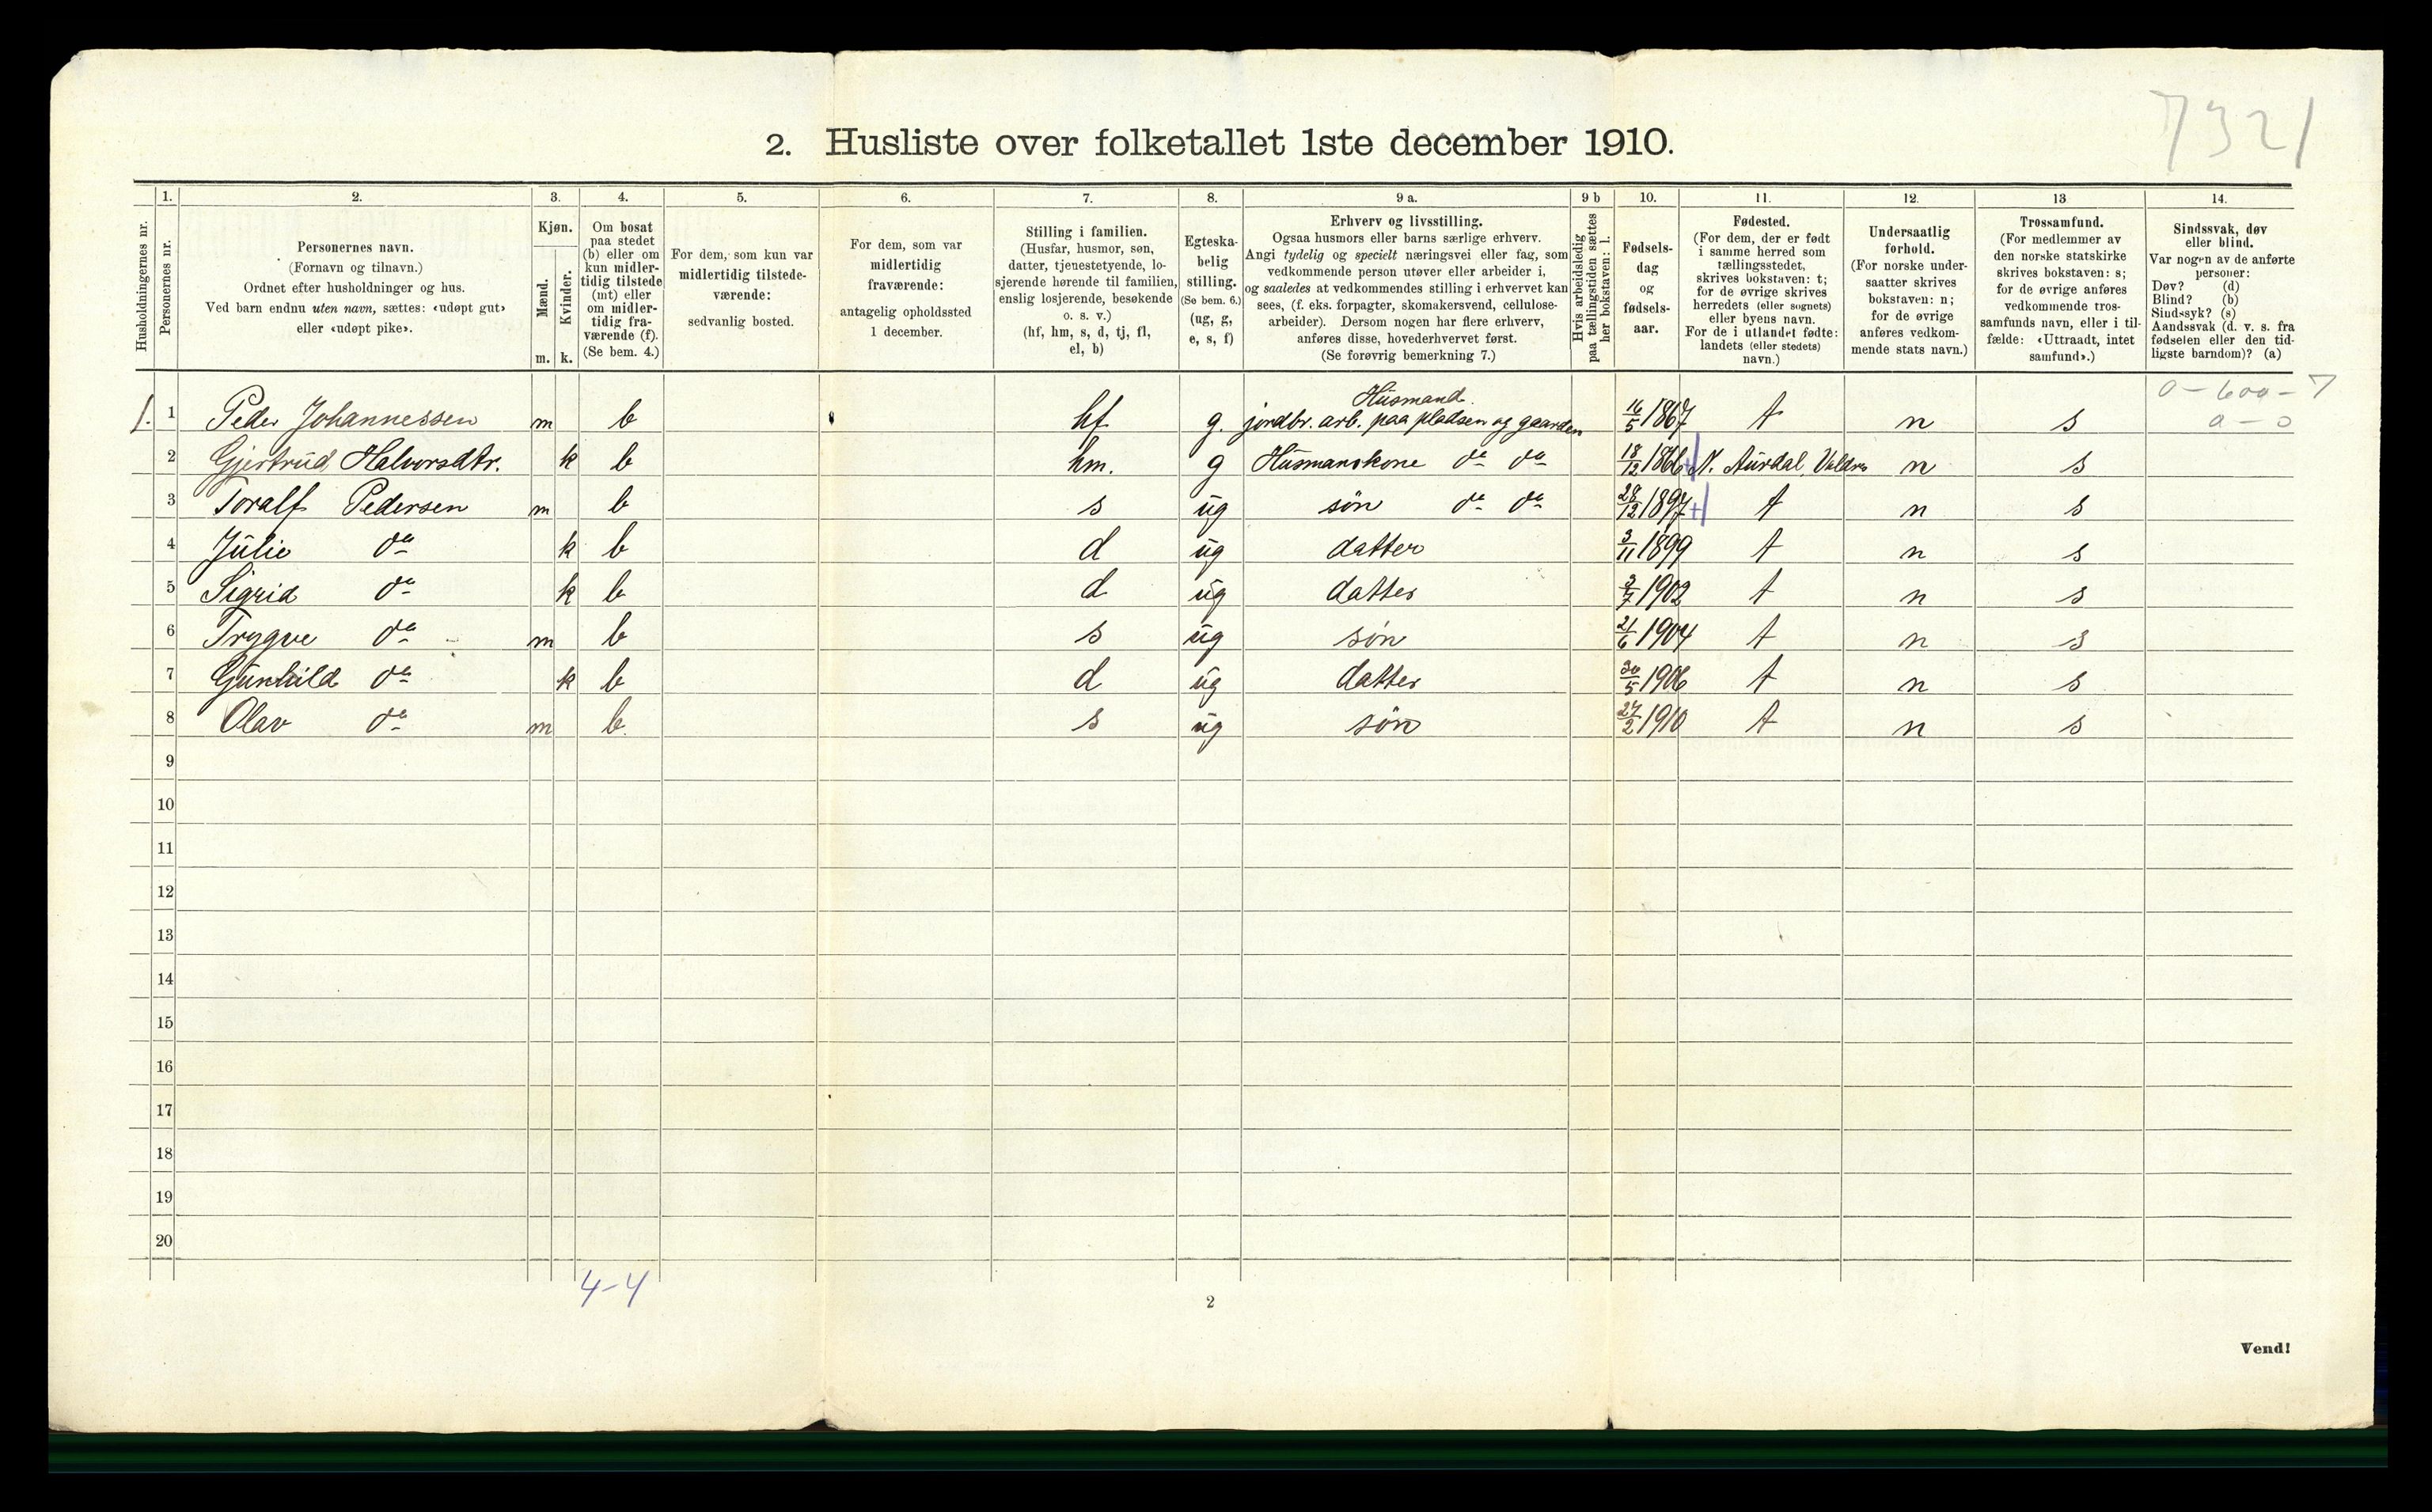 7321
2. Husliste over folketallet 1ste december 1910.
Husholdningernes nr.
1.
Personernes nr.
2.
Personernes navn.
(Fornavn og tilnavn.)
Ordnet efter husholdninger og hus.
Ved barn endnu uten navn, sættes: «udøpt gut»
eller «udøpt pike».
3.
Kjøn.
Mænd.
m.
Kvinder.
k.
4.
Om bosat
paa stedet
(b) eller om
kun midler-
tidig tilstede
(mt) eller
om midler-
tidig fra-
værende (f).
(Se bem. 4.)
5.
For dem, som kun var
midlertidig tilstede-
værende:
sedvanlig bosted.
6.
For dem, som var
midlertidig
fraværende:
antagelig opholdssted
1 december.
7.
Stilling i familien.
(Husfar, husmor, søn,
datter, tjenestetyende, lo-
sjerende hørende til familien,
enslig losjerende, besøkende
o. s. v.)
(hf, hm, s, d, tj, fl,
el, b)
8.
Egteska-
belig
stilling.
(Se bem. 6.)
(ug, g,
e, s, f)
9 a.
Erhverv og livsstilling.
Ogsaa husmors eller barns særlige erhverv.
Angi tydelig og specielt næringsvei eller fag, som
vedkommende person utøver eller arbeider i,
og saaledes at vedkommendes stilling i erhvervet kan
sees, (f. eks. forpagter, skomakersvend, cellulose-
arbeider). Dersom nogen har flere erhverv,
anføres disse, hovederhvervet først.
(Se forøvrig bemerkning 7.)
9 b
Hvis arbeidsledig
paa tællingstiden sættes
her bokstaven: l.
10.
Fødsels-
dag
og
fødsels-
aar.
11.
Fødested.
(For dem, der er født
i samme herred som
tællingsstedet,
skrives bokstaven: t;
for de øvrige skrives
herredets (eller sognets)
eller byens navn.
For de i utlandet fødte:
landets (eller stedets)
navn.)
12.
Undersaatlig
forhold.
(For norske under-
saatter skrives
bokstaven: n;
for de øvrige
anføres vedkom-
mende stats navn.)
13
Trossamfund.
(For medlemmer av
den norske statskirke
skrives bokstaven: s;
for de øvrige anføres
vedkommende tros-
samfunds navn, eller i til-
fælde: «Uttraadt, intet
samfund».)
14.
Sindssvak, døv
eller blind.
Var nogen av de anførte
personer:
Døv? (d)
Blind? (b)
Sindssyk? (s)
Aandssvak (d. v. s. fra
fødselen eller den tid-
ligste barndom)? (a)
0 - 600 - 7
0 - 0
Husmand.
1. 1 Peder Johannessen m b hf g. jordbr. arb. paa pladsen og gaarden 16/5 1867 t n s
2 Gjertrud Halvorsdtr. k b hm. g Husmanskone do do 18/12 1866 N. Aurdal, Valdrs n s
3 Toralf Pedersen m b s ug søn do do 28/12 1897 t n s
4 Julie do k b d ug datter 3/11 1899 t n s
5 Sigrid do k b d ug datter 3/7 1902 t n s
6 Trygve do m b s ug søn 21/6 1904 t n s
7 Gunhild do k b d ug datter 30/5 1906 t n s
8 Olav do m b. s ug søn 27/2 1910 t n s
9
10
11
12
13
14
15
16
17
18
19
20
4-4
2
Vend!